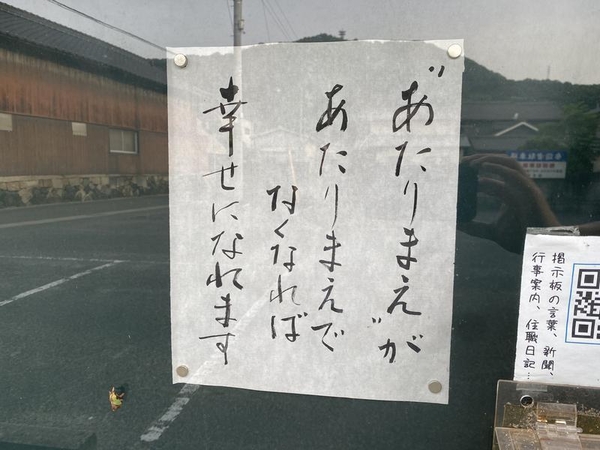 "あたりまえ"が
あたりまえで
なくなれば
幸せになれます
掲示板の言葉、新聞、
行事案内、住職日記…